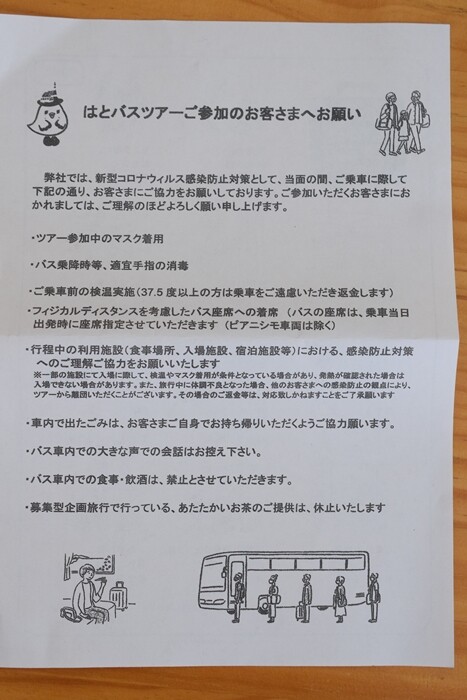 はとバスツアーご参加のお客さまへお願い
弊社では、新型コロナウィルス感染防止対策として、当面の間、ご乗車に際して
下記の通り、お客さまにご協力をお願いしております。ご参加いただくお客さまにお
かれましては、ご理解のほどよろしく願い申し上げます。
・ツアー参加中のマスク着用
・バス乗降時等、適宜手指の消毒
・ご乗車前の検温実施（37.5 度以上の方は乗車をご遠慮いただき返金します）
・フィジカルディスタンスを考慮したバス座席への着席（バスの座席は、乗車当日
出発時に座席指定させていただきます（ピアニシモ車両は除く）
・行程中の利用施設（食事場所、入場施設、宿泊施設等）における、感染防止対策
へのご理解ご協力をお願いいたします
※一部の施設にて入場に際して、検温やマスク着用が条件となっている場合があり、発熱が確認された場合は
入場できない場合があります。また、旅行中に体調不良となった場合、他のお客さまへの感染防止の観点により、
ツアーから離団いただくことがございます。その場合のご返金等は、対応致しかねますことをご了承願います
・車内で出たごみは、お客さまご自身でお持ち帰りいただくようご協力願います。
・バス車内での大きな声での会話はお控え下さい。
・バス車内での食事・飲酒は、禁止とさせていただきます。
・募集型企画旅行で行っている、あたたかいお茶のご提供は、休止いたします